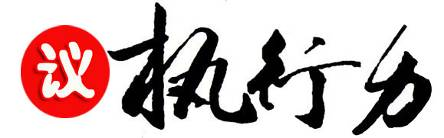 议执行力